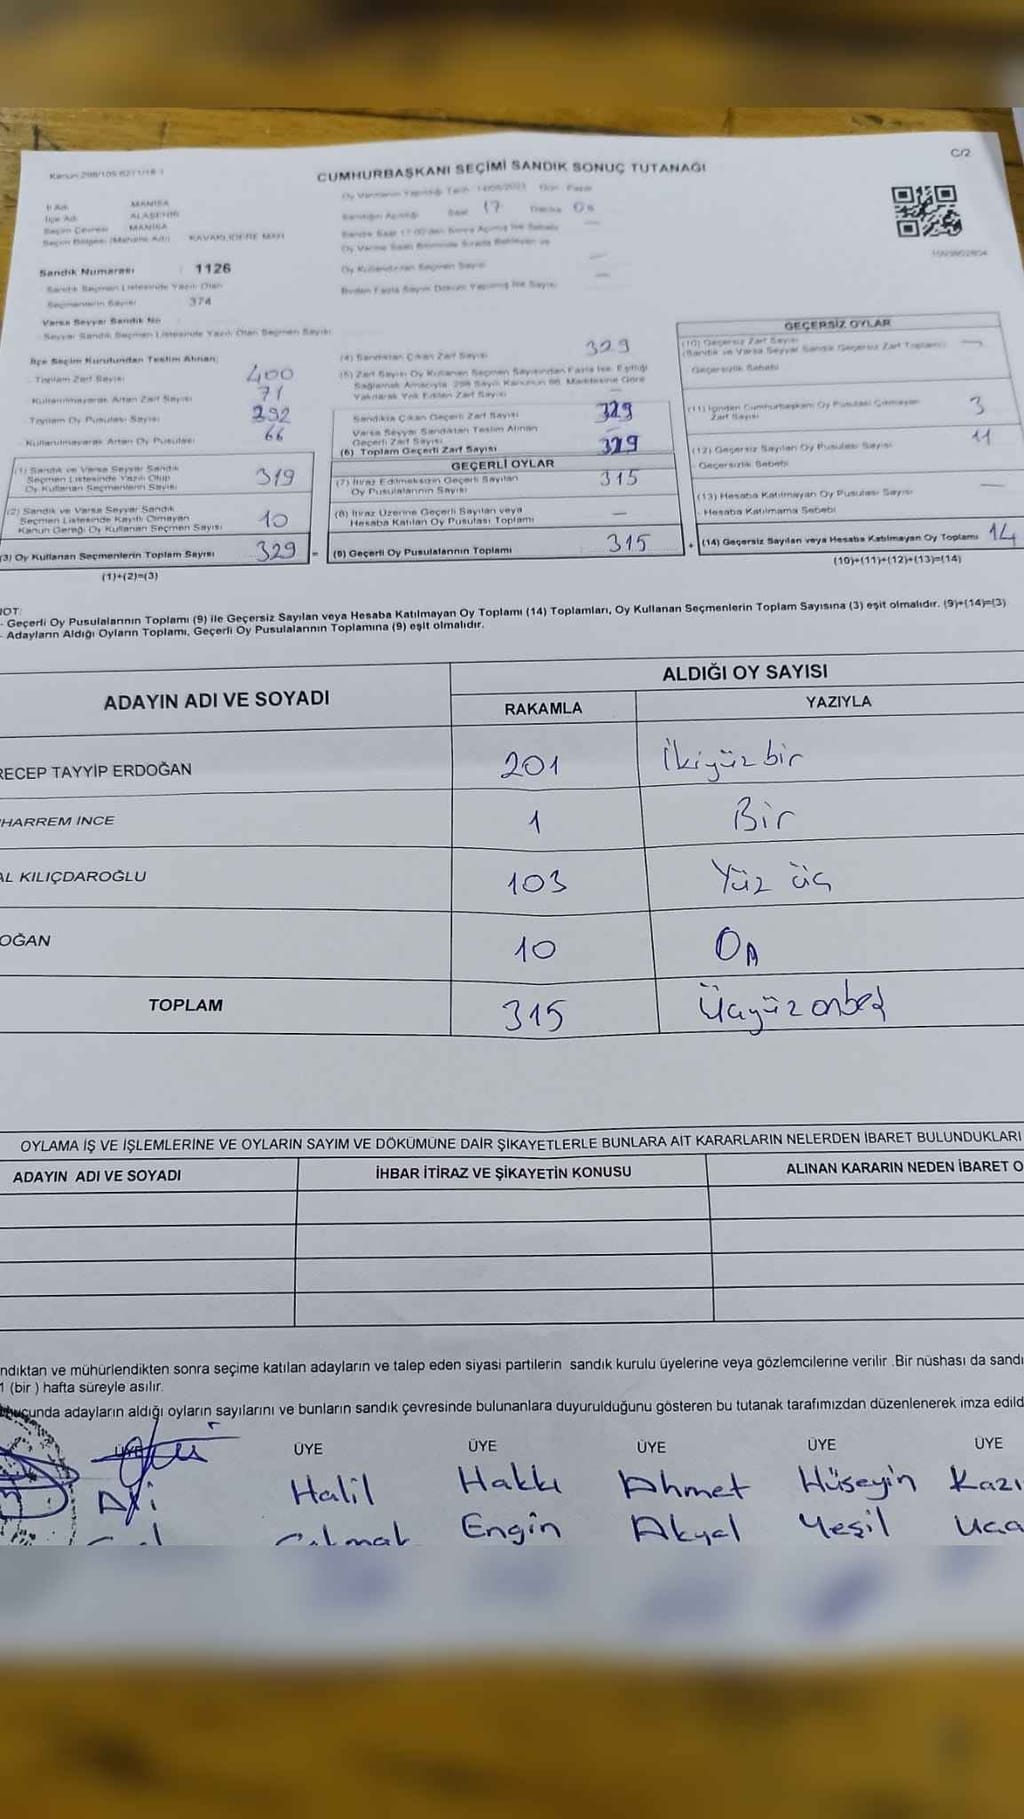 C/2
CUMHURBAŞKANI SEÇİMİ SANDIK SONUÇ TUTANAĞI
Oy Vermenin Yapıldığı Tarih 14/05/2023 Gün Pazar
İl Adı MANİSA
İlçe Adı ALAŞEHİR
Seçim Çevresi MANİSA
Seçim Bölgesi (Mahalle Adı) KAVAKLIDERE MAH
Sandığın Açıldığı Saat 17
Sandık Numarası 1126
Sandık Seçmen Listesinde Yazılı Olan
Seçmenlerin Sayısı 374
Varsa Seyyar Sandık No
Seyyar Sandık Seçmen Listesinde Yazılı Olan Seçmen Sayısı
Oy Kullandırılan Seçmen Sayısı
İlçe Seçim Kurulundan Teslim Alınan;
Toplam Zarf Sayısı 400
Kullanılmayarak Artan Zarf Sayısı 71
Toplam Oy Pusulası Sayısı
Kullanılmayarak Artan Oy Pusulası 66
(1) Sandık ve Varsa Seyyar Sandık
Seçmen Listesinde Yazılı Olup
Oy Kullanan Seçmenlerin Sayısı 319
(2) Sandık ve Varsa Seyyar Sandık
Seçmen Listesinde Kayıtlı Olmayan
Kanun Gereği Oy Kullanan Seçmen Sayısı 10
(3) Oy Kullanan Seçmenlerin Toplam Sayısı 329
(1)+(2)=(3)
(4) Sandıktan Çıkan Zarf Sayısı 329
(5) Zarf Sayısı Oy Kullanan Seçmen Sayısından Fazla İse, Eşitliği
Sağlamak Amacıyla 298 Sayılı Kanunun 98. Maddesine Göre
Yakılarak Yok Edilen Zarf Sayısı
Sandıkta Çıkan Geçerli Zarf Sayısı 329
Varsa Seyyar Sandıktan Teslim Alınan
Geçerli Zarf Sayısı
(6) Toplam Geçerli Zarf Sayısı 329
GEÇERLİ OYLAR
(7) İtiraz Edilmeksizin Geçerli Sayılan
Oy Pusulalarının Sayısı 315
(8) İtiraz Üzerine Geçerli Sayılan veya
Hesaba Katılan Oy Pusulası Toplamı —
(9) Geçerli Oy Pusulalarının Toplamı 315
GEÇERSİZ OYLAR
(10) Geçersiz Zarf Sayısı
(Sandık ve Varsa Seyyar Sandık Geçersiz Zarf Toplamı) —
Geçersizlik Sebebi
(11) İçinden Cumhurbaşkanı Oy Pusulası Çıkmayan
Zarf Sayısı 3
(12) Geçersiz Sayılan Oy Pusulası Sayısı 11
Geçersizlik Sebebi
(13) Hesaba Katılmayan Oy Pusulası Sayısı —
Hesaba Katılmama Sebebi
(14) Geçersiz Sayılan veya Hesaba Katılmayan Oy Toplamı 14
(10)+(11)+(12)+(13)=(14)
NOT:
- Geçerli Oy Pusulalarının Toplamı (9) ile Geçersiz Sayılan veya Hesaba Katılmayan Oy Toplamı (14) Toplamları, Oy Kullanan Seçmenlerin Toplam Sayısına (3) eşit olmalıdır. (9)+(14)=(3)
- Adayların Aldığı Oyların Toplamı, Geçerli Oy Pusulalarının Toplamına (9) eşit olmalıdır.
ADAYIN ADI VE SOYADI ALDIĞI OY SAYISI
RAKAMLA YAZIYLA
RECEP TAYYİP ERDOĞAN 201 İkiyüzbir
HARREM İNCE 1 Bir
AL KILIÇDAROĞLU 103 Yüz üç
OĞAN 10 On
TOPLAM 315 Üçyüzonbeş
OYLAMA İŞ VE İŞLEMLERİNE VE OYLARIN SAYIM VE DÖKÜMÜNE DAİR ŞİKAYETLERLE BUNLARA AİT KARARLARIN NELERDEN İBARET BULUNDUKLARI
ADAYIN ADI VE SOYADI İHBAR İTİRAZ VE ŞİKAYETİN KONUSU ALINAN KARARIN NEDEN İBARET O
ndıktan ve mühürlendikten sonra seçime katılan adayların ve talep eden siyasi partilerin sandık kurulu üyelerine veya gözlemcilerine verilir .Bir nüshası da sandı
1 (bir ) hafta süreyle asılır.
ucunda adayların aldığı oyların sayılarını ve bunların sandık çevresinde bulunanlara duyurulduğunu gösteren bu tutanak tarafımızdan düzenlenerek imza edild
ÜYE ÜYE ÜYE ÜYE ÜYE
Ali Halil Hakkı Ahmet Hüseyin Kazı
Engin Akyol Yeşil